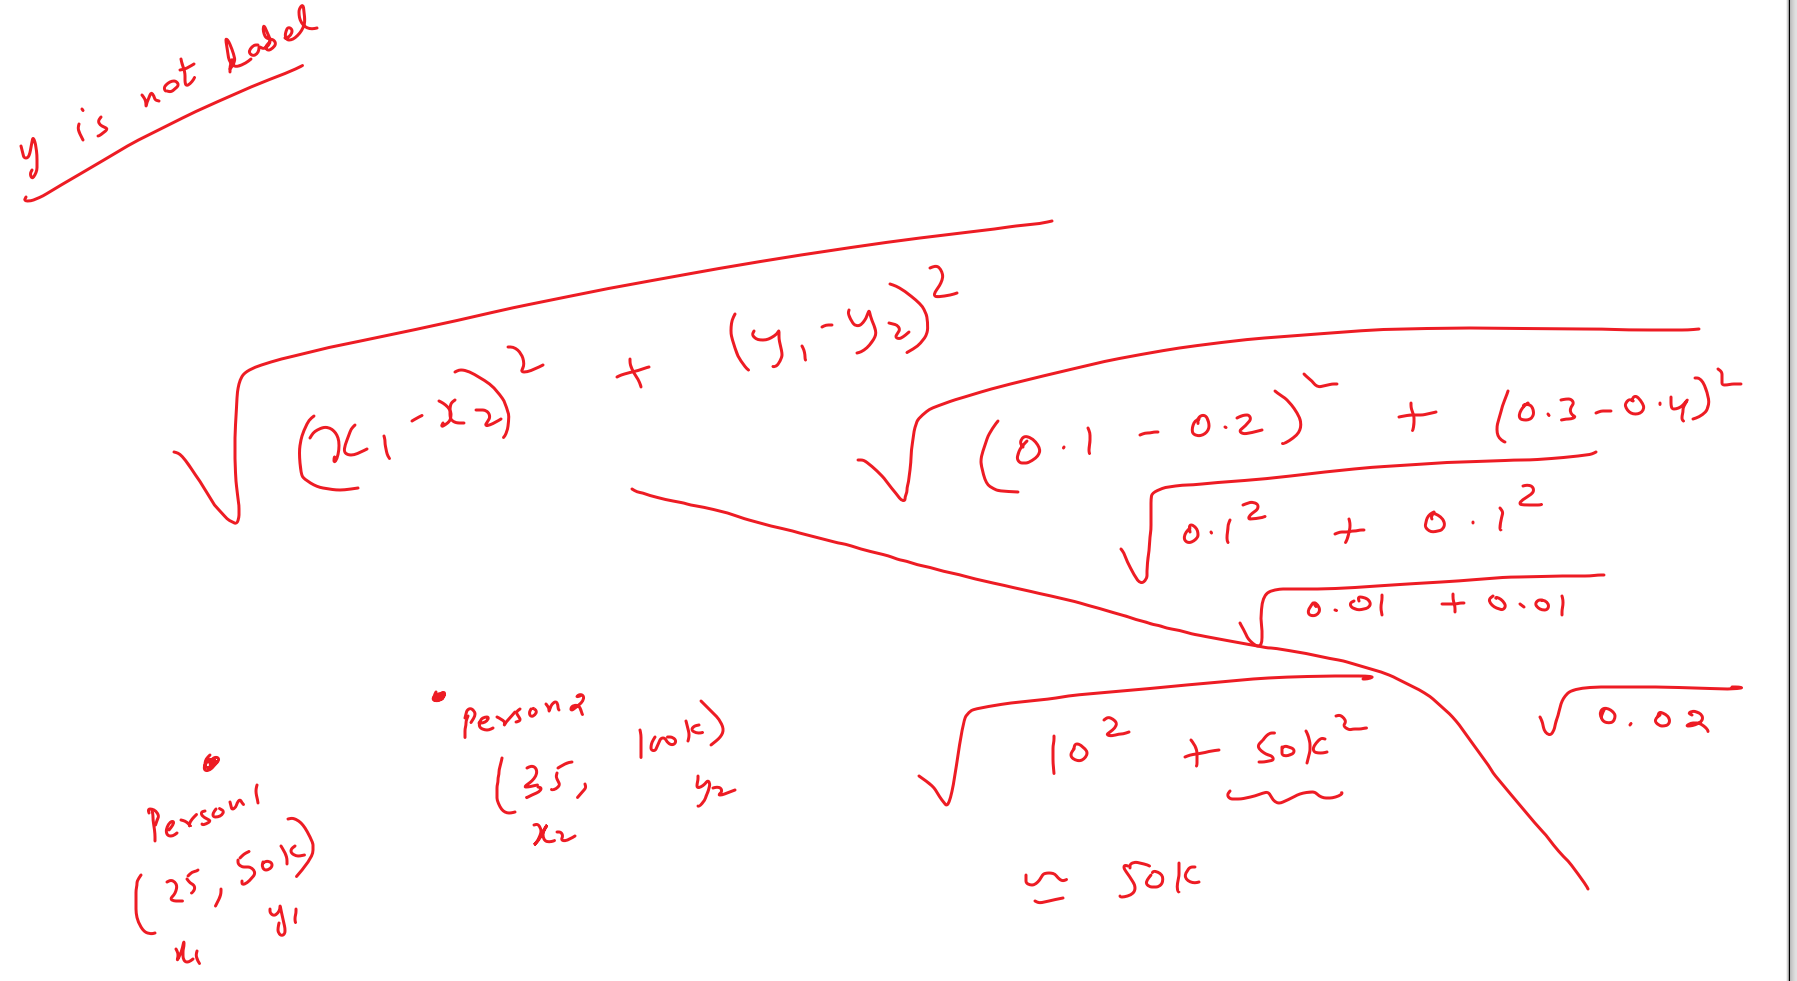 y is not Label
√((x₁ - x₂)² + (y₁ - y₂)²)
√((0.1 - 0.2)² + (0.3 - 0.4)²)
√(0.1² + 0.1²)
√(0.01 + 0.01)
√(0.02)
Person1
(25, 50k)
x₁ y₁
Person2
(35, 100k)
x₂ y₂
√(10² + 50k²)
≃ 50k